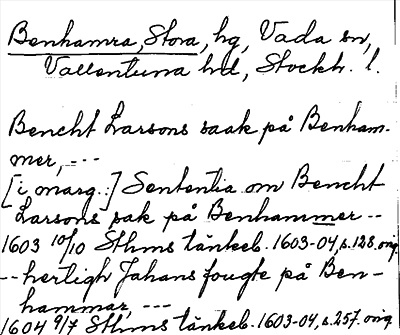 Benhamra, Stora, hg, Vada sn,
Vallentuna hd, Stockh. l.
Bencht Larsons saak på Benham-
mer, ---
[i marg.:] Sententia om Bencht
Larsons sak på Benhammer --
1603 10/10 Sthms tänkeb. 1603-04, s. 128. orig.
-- hertigh Johans fougte på Ben-
hammar, ---
1604 9/7 Sthms tänkeb. 1603-04, s. 257. orig.